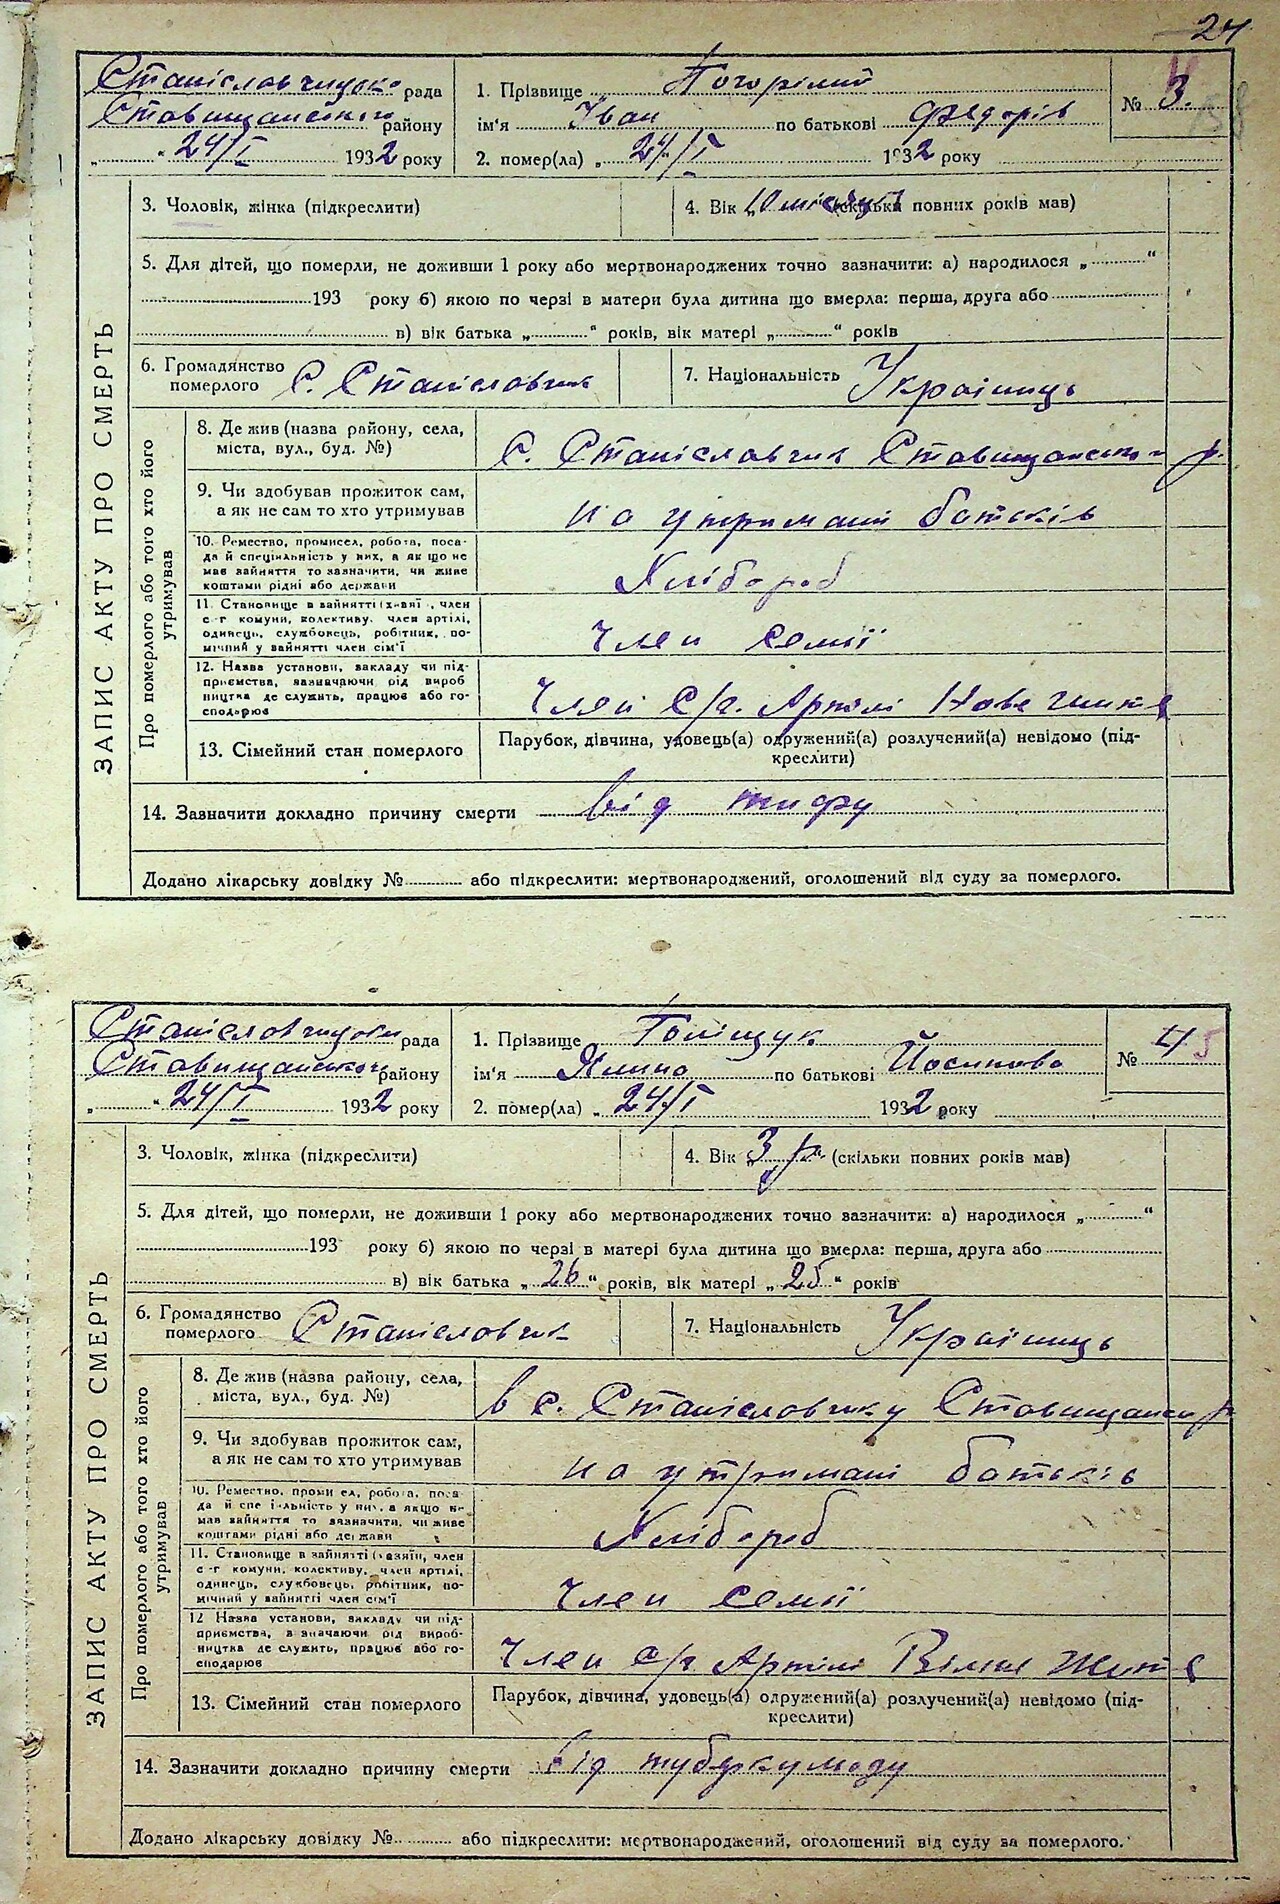 24
Станіславчицька рада
Ставищанського району
„ “ 24/I 1932 року
1. Прізвище Погорілий
ім'я Іван по батькові Федорів
2. помер(ла) „ 24/I 1932 року
№ 3.
3. Чоловік, жінка (підкреслити)
4. Вік „10 місяців (скільки повних років мав)
5. Для дітей, що померли, не доживши 1 року або мертвонароджених точно зазначити: а) народилося „ “
193 року б) якою по черзі в матери була дитина що вмерла: перша, друга або
в) вік батька „ “ років, вік матері „ “ років
6. Громадянство
померлого С. Станіславчик
7. Національність Українець
ЗАПИС АКТУ ПРО СМЕРТЬ
Про померлого або того хто його
утримував
8. Де жив (назва району, села,
міста, вул., буд. №)
С. Станіславчик Ставищанськ р.
9. Чи здобував прожиток сам,
а як не сам то хто утримував
на утримані батьків
10. Ремество, промисел, робота, поса-
да й спеціяльність у них, а як що не
має зайняття то зазначити, чи живе
коштами рідні або держави
Хлібороб
11. Становище в зайнятті (хазяї , член
с-г комуни, колективу, член артілі,
одинець, службовець, робітник, по-
мічний у зайнятті член сім'ї
Член семії
12. Назва установи, закладу чи під-
приємства, зазначаючи рід вироб
ництва де служить, працює або го-
сподарює
Член С/г. Артілі Нове життя
13. Сімейний стан померлого
Парубок, дівчина, удовець(а) одружений(а) розлучений(а) невідомо (під-
креслити)
14. Зазначити докладно причину смерти від тифу
Додано лікарську довідку № або підкреслити: мертвонароджений, оголошений від суду за померлого.
Станіславчицька рада
Ставищанського району
„ “ 24/I 1932 року
1. Прізвище Поліщук
ім'я Ялина по батькові Йосипова
2. помер(ла) „ 24/I 1932 року
№ 4 5
3. Чоловік, жінка (підкреслити)
4. Вік „3 р“ (скільки повних років мав)
5. Для дітей, що померли, не доживши 1 року або мертвонароджених точно зазначити: а) народилося „ “
193 року б) якою по черзі в матері була дитина що вмерла: перша, друга або
в) вік батька „26“ років, вік матері „25“ років
6. Громадянство
померлого Станіславчик
7. Національність Українець
ЗАПИС АКТУ ПРО СМЕРТЬ
Про померлого або того хто його
утримував
8. Де жив (назва району, села,
міста, вул., буд. №)
в с. Станіславчику Ставищанськ р
9. Чи здобував прожиток сам,
а як не сам то хто утримував
на утримані батьків
10. Ремество, проми ел, робота, поса
да й спе іяльність у них, а якщо не
має зайняття то зазначити, чи живе
коштами рідні або держави
Хлібороб
11. Становище в зайнятті (хазяїн, член
с-г комуни, колективу, член артілі,
одинець, службовець, робітник, по-
мічний у зайнятті член сім'ї
Член семії
12 Назва установи, закладу чи під-
приємства, зазначаючи рід вироб-
ництва де служить, працює або го-
сподарює
Член с/г Артілі Вільне Життя
13. Сімейний стан померлого
Парубок, дівчина, удовець(а) одружений(а) розлучений(а) невідомо (під-
креслити)
14. Зазначити докладно причину смерти від туберкульозу
Додано лікарську довідку № або підкреслити: мертвонароджений, оголошений від суду за померлого.